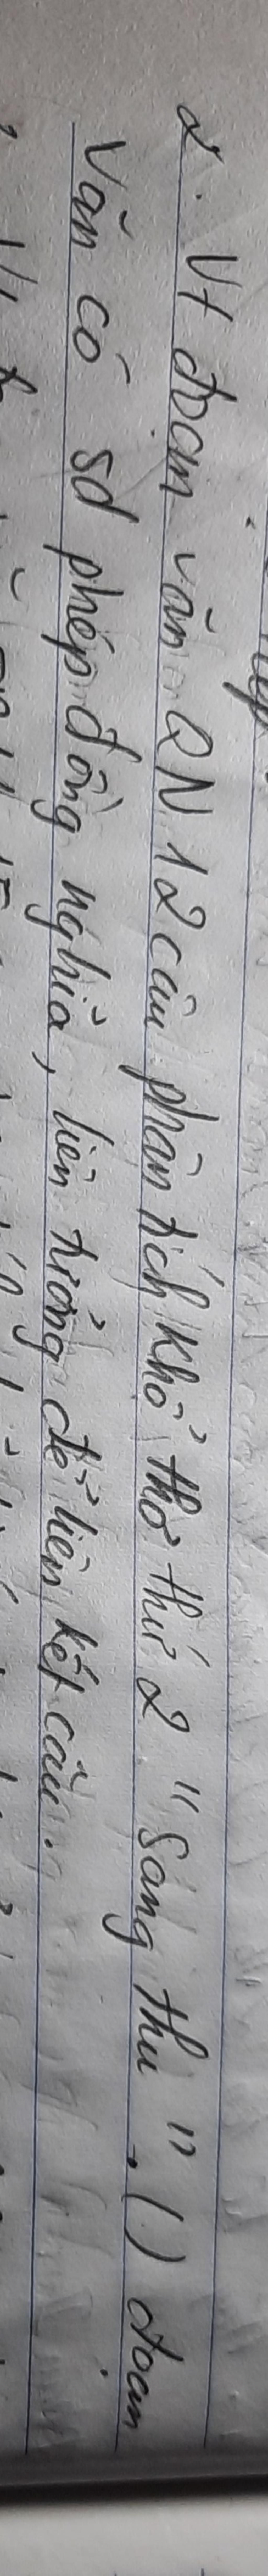 2. Vt đoạn văn QN 12 câu phân tích khổ thơ thứ 2 "Sang thu". ( ) đoạn
văn có sd phép đồng nghĩa, liên tưởng để liên kết câu.